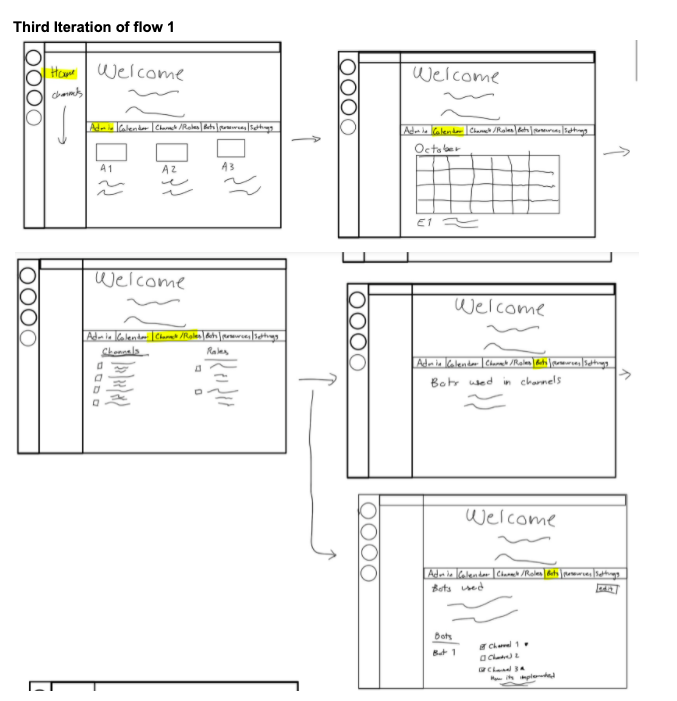 Third Iteration of flow 1
Home
channels
Welcome
Admin |Calendar |Channels/Roles|Bots|resources|Settings
A1 A2 A3
Welcome
Admin |Calendar |Channels/Roles|Bots|resources|Settings
October
E1
Welcome
Admin |Calendar |Channels/Roles|Bots|resources|Settings
Channels Roles
Welcome
Admin |Calendar |Channels/Roles|Bots|resources|Settings
Bots used in channels
Welcome
Admin |Calendar |Channels/Roles|Bots|resources|Settings
Bots used edit
Bots
Bot 1 Channel 1
Channel 2
Channel 3
How its implemented